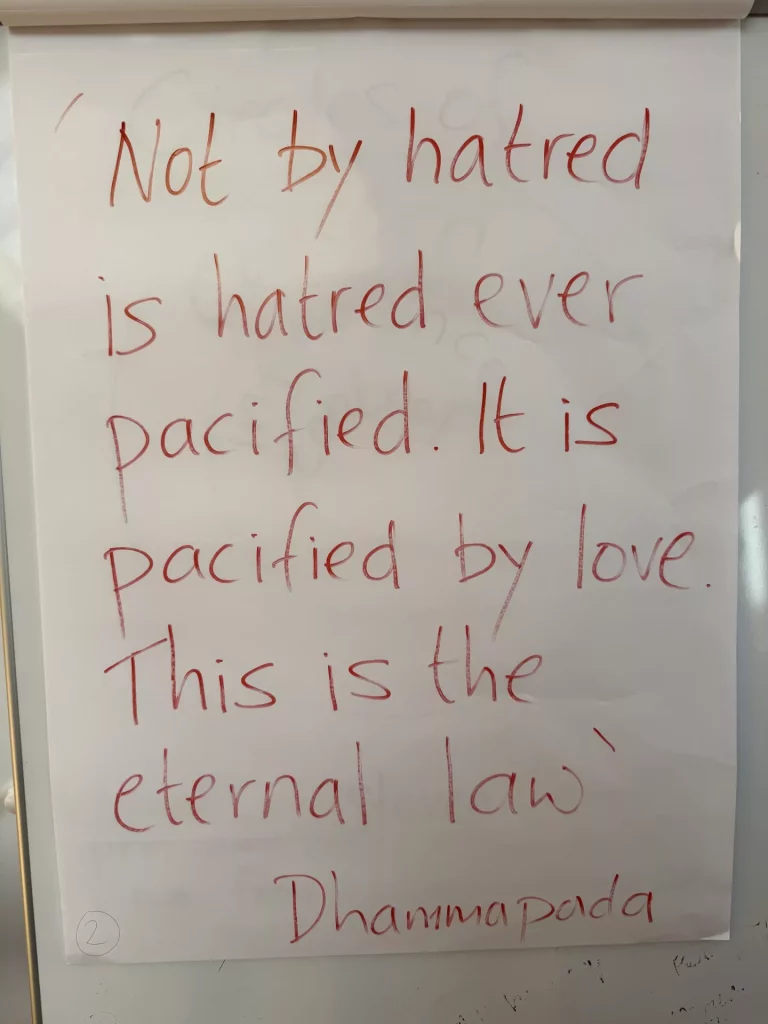 'Not by hatred
is hatred ever
pacified. It is
pacified by love.
This is the
eternal law'
Dhammapada
2